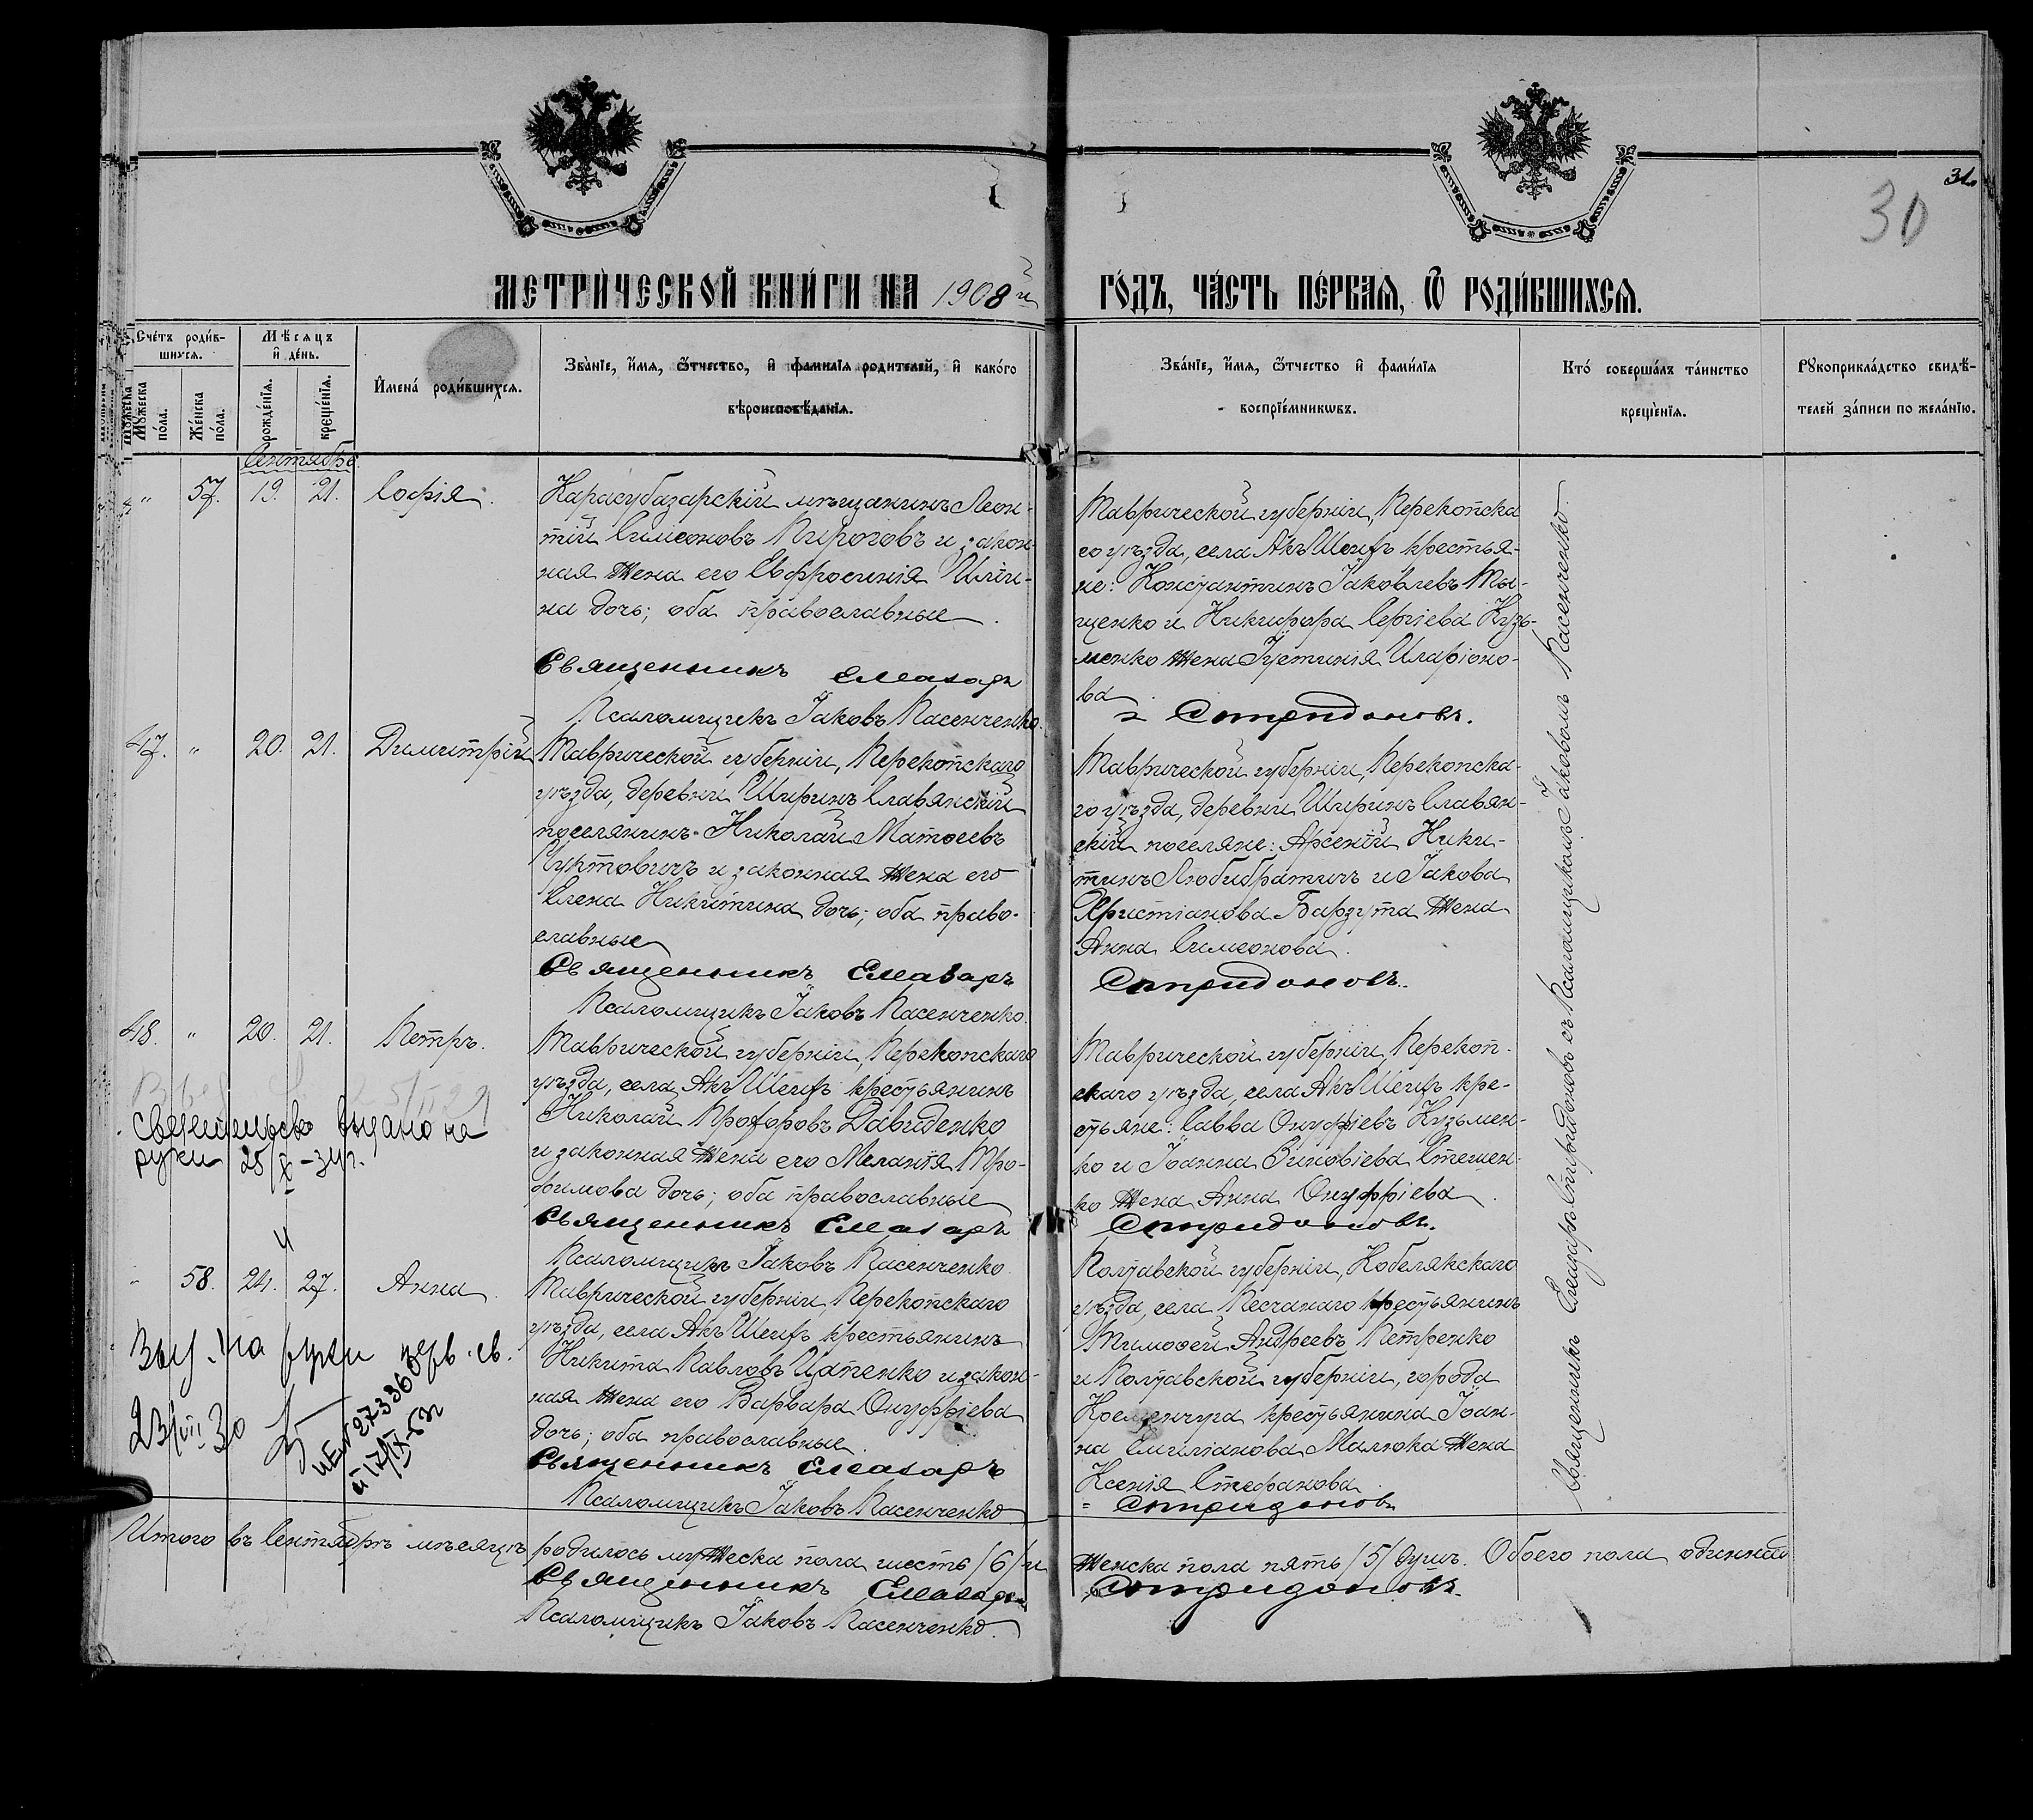 31.
30
МЕТРИЧЕСКОЙ КНИГИ НА 1908й
ГОДЪ, ЧАСТЬ ПЕРВАЯ, Ѿ РОДИВШИХСЯ.
Счетъ родившихся.
Мужеска пола.
Женска пола.
Мѣсяцъ и день.
рожденія.
крещенія.
Имена родившихся.
Званіе, имя, ѿтчество, и фамилія родителей, и какого
вѣроисповѣданія.
Званіе, имя, ѿтчество и фамилія
воспріемниковъ.
Кто совершалъ таинство
крещенія.
Рукоприкладство свидѣ-
телей записи по желанію.
Сентябрь
" 57. 19. 21. Софія.
Карасубазарскій мѣщанинъ Леон-
тій Симеоновъ Пироговъ и закон-
ная жена его Евфросинія Иліи-
на дочь; оба православные.
Священникъ Елеазаръ
Псаломщикъ Іаковъ Пасенченко.
Таврической губерніи, Перекопска
го уѣзда, села Акъ Шеихъ крестья-
не: Константинъ Іаковлевъ Ты-
щенко и Никифора Сергіева Кузь-
менко жена Іустинія Иларіоно-
ва.
Спиридоновъ.
47. " 20. 21. Димитрій
Таврической губерніи, Перекопскаго
уѣзда, деревни Ширинъ Славянскій
поселянинъ Николай Матѳеевъ
Чуптовичъ и законная жена его
Елена Никитина дочь; оба право-
славные
Священникъ Елеазаръ
Псаломщикъ Іаковъ Пасенченко.
Таврической губерніи, Перекопска-
го уѣзда, деревни Ширинъ Славян-
скій поселяне: Арсеній Ники-
тинъ Любибратичъ и Іакова
Христіанова Барзута жена
Анна Симеонова.
Спиридоновъ.
48. " 20. 21. Петръ.
Свидетельство выдано на
руки 25/X-34г.
Таврической губерніи, Перекопскаго
уѣзда, села Акъ Шеихъ крестьянинъ
Николай Прохоровъ Давиденко
и законная жена его Меланія Тро-
фимова дочь; оба православные
Священникъ Елеазаръ
Псаломщикъ Іаковъ Пасенченко
Таврической губерніи, Перекоп-
скаго уѣзда, села Акъ Шеихъ кре-
стьяне: Савва Онуфріевъ Кузьмен-
ко и Іоанна Зиновіева Стешен-
ко жена Анна Онуфріева.
Спиридоновъ.
" 58. 24. 27. Анна.
Выд. на руки
23/VII 30
273360
17/IX-53г
Таврической губерніи, Перекопскаго
уѣзда, села Акъ Шеихъ крестьянинъ
Никита Павловъ Цапенко и закон-
ная жена его Варвара Онуфріева
дочь; оба православные.
Священникъ Елеазаръ
Псаломщикъ Іаковъ Пасенченко
Полтавской губерніи, Кобелякскаго
уѣзда, села Песчанаго крестьянинъ
Тимоѳей Андреевъ Петренко
и Полтавской губерніи, города
Кременчуга крестьянина Іоан-
на Емиліанова Малюка жена
Ксенія Стефанова
Спиридоновъ
Священникъ Елеазаръ Спиридоновъ съ Псаломщикомъ Іаковомъ Пасенченко.
Итого въ Сентябрѣ мѣсяцѣ родилось мужеска пола шесть /6/ и женска пола пять /5/ душъ. Обоего пола одиннад
Священникъ Елеазаръ Спиридоновъ
Псаломщикъ Іаковъ Пасенченко.